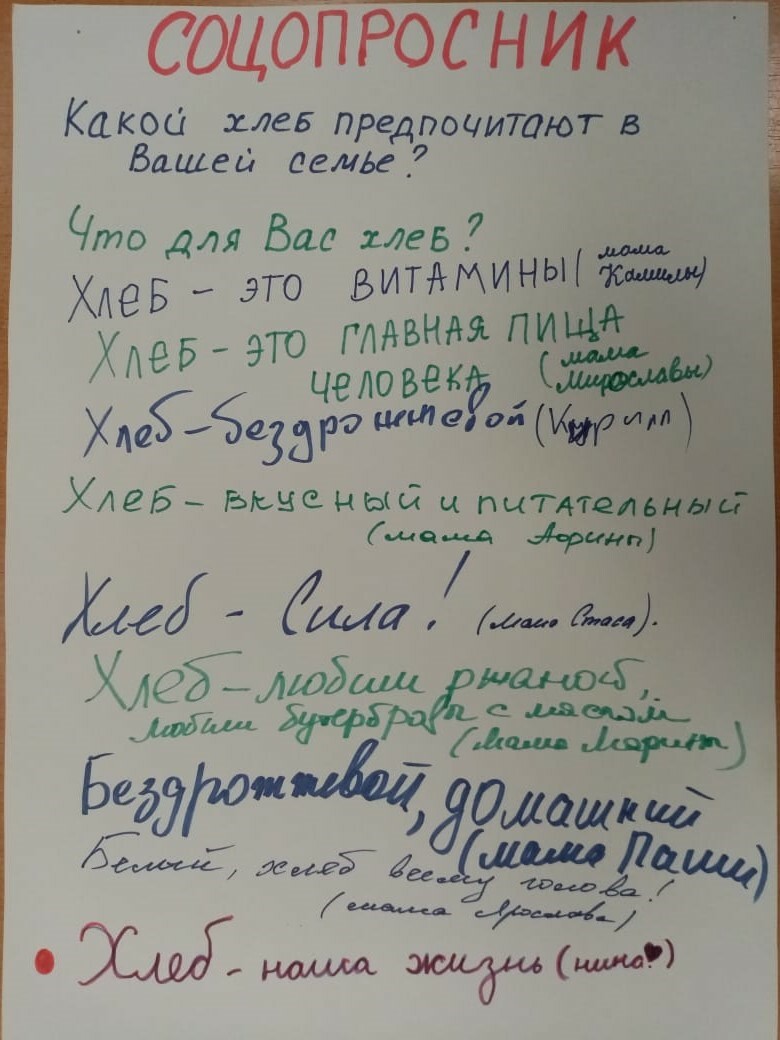 СОЦОПРОСНИК
Какой хлеб предпочитают в
Вашей семье?
Что для Вас хлеб?
Хлеб - это витамины (мама
Камилы)
Хлеб - это главная пища
человека (мама
Мирославы)
Хлеб - бездрожжевой (Кирилл)
Хлеб - вкусный и питательный
(мама Арины)
Хлеб - Сила! (мама Стаса).
Хлеб - любим ржаной,
любим бутерброды с маслом
(мама Марины)
Бездрожжевой, домашний
(мама Паши)
Белый, хлеб всему голова!
(мама Ярослава)
Хлеб - наша жизнь (нина)